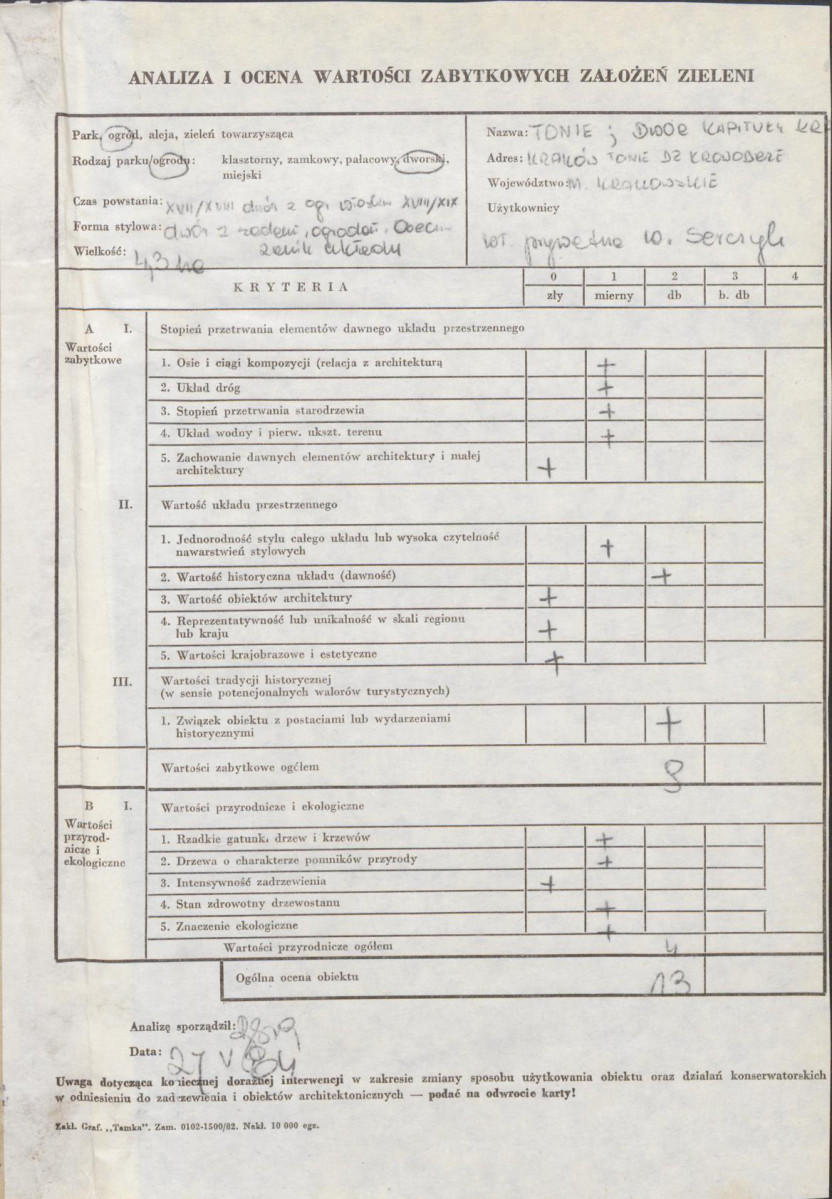 ANALIZA I OCENA WARTOŚCI ZABYTKOWYCH ZAŁOŻEŃ ZIELENI
Park, ogród, aleja, zieleń towarzysząca
Rodzaj parku/ogrodu: klasztorny, zamkowy, pałacowy, dworski,
miejski
Czas powstania: XVII/XVIII dwór z ogr. XVIII/XIX
Forma stylowa: dwór z ogrodem. Obecn.
zanik układu
Wielkość: 4,3 ha
Nazwa: TONIE ; DWÓR KAPITUŁY KRA
Adres: KRAKÓW TONIE DZ KROWODRZE
Województwo: M. KRAKOWSKIE
Użytkownicy
wł. prywatna W. Serczyk
KRYTERIA
0 1 2 3 4
zły mierny db b. db
A I. Stopień przetrwania elementów dawnego układu przestrzennego
Wartości
zabytkowe
1. Osie i ciągi kompozycji (relacja z architekturą +
2. Układ dróg +
3. Stopień przetrwania starodrzewia +
4. Układ wodny i pierw. ukszt. terenu +
5. Zachowanie dawnych elementów architektury i małej
architektury +
II. Wartość układu przestrzennego
1. Jednorodność stylu całego układu lub wysoka czytelność
nawarstwień stylowych +
2. Wartość historyczna układu (dawność) +
3. Wartość obiektów architektury +
4. Reprezentatywność lub unikalność w skali regionu
lub kraju +
5. Wartości krajobrazowe i estetyczne +
III. Wartości tradycji historycznej
(w sensie potencjonalnych walorów turystycznych)
1. Związek obiektu z postaciami lub wydarzeniami
historycznymi +
Wartości zabytkowe ogółem 9
B I. Wartości przyrodnicze i ekologiczne
Wartości
przyrod-
nicze i
ekologiczne
1. Rzadkie gatunki drzew i krzewów +
2. Drzewa o charakterze pomników przyrody +
3. Intensywność zadrzewienia +
4. Stan zdrowotny drzewostanu +
5. Znaczenie ekologiczne +
Wartości przyrodnicze ogółem 4
Ogólna ocena obiektu 13
Analizę sporządził:
Data: 27 V 84
Uwaga dotycząca koniecznej doraźnej interwencji w zakresie zmiany sposobu użytkowania obiektu oraz działań konserwatorskich
w odniesieniu do zadrzewienia i obiektów architektonicznych — podać na odwrocie karty!
Zakł. Graf. „Tamka". Zam. 0102-1500/82. Nakł. 10 000 egz.